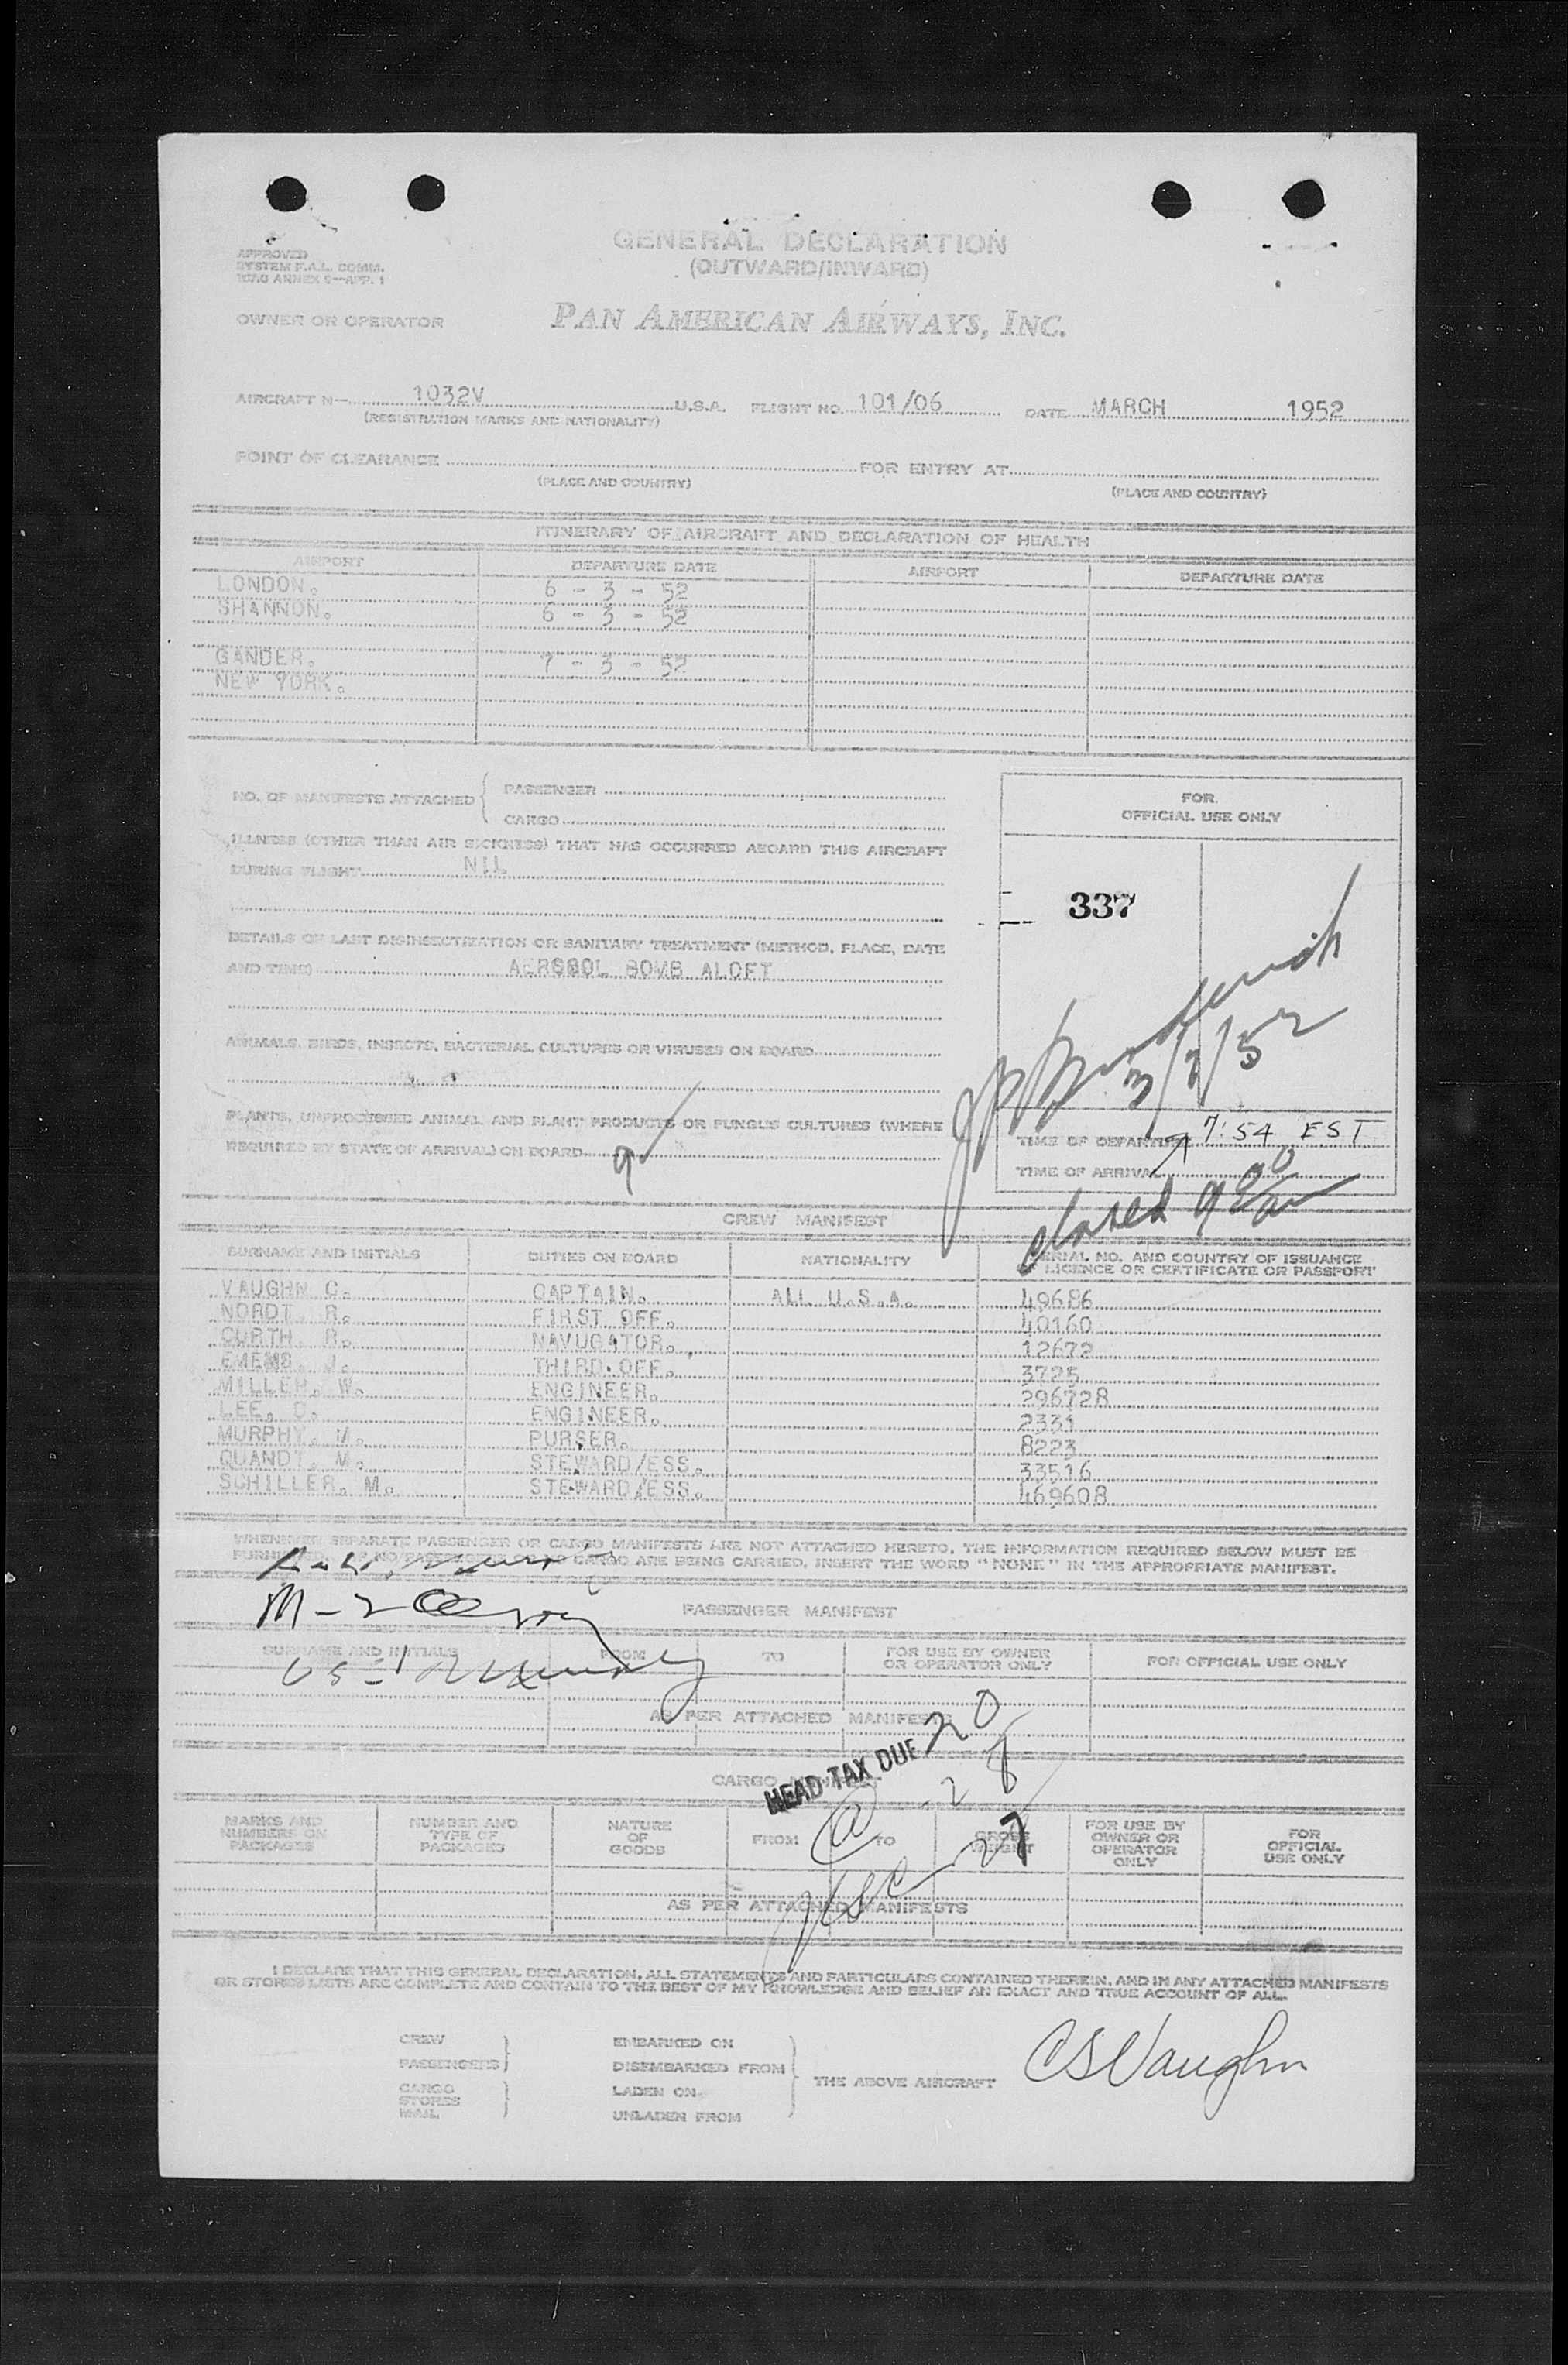 GENERAL DECLARATION
(OUTWARD/INWARD)
APPROVED
SYSTEM F.A.L. COMM.
ICAO ANNEX 9—APP. 1
OWNER OR OPERATOR PAN AMERICAN AIRWAYS, INC.
AIRCRAFT N— 1032V U.S.A. FLIGHT NO. 101/06 DATE MARCH 1952
(REGISTRATION MARKS AND NATIONALITY)
POINT OF CLEARANCE FOR ENTRY AT
(PLACE AND COUNTRY) (PLACE AND COUNTRY)
ITINERARY OF AIRCRAFT AND DECLARATION OF HEALTH
AIRPORT DEPARTURE DATE AIRPORT DEPARTURE DATE
LONDON. 6 - 3 - 52
SHANNON. 6 - 3 - 52
GANDER. 7 - 3 - 52
NEW YORK.
NO. OF MANIFESTS ATTACHED { PASSENGER
CARGO
ILLNESS (OTHER THAN AIR SICKNESS) THAT HAS OCCURRED ABOARD THIS AIRCRAFT
DURING FLIGHT NIL
DETAILS OF LAST DISINSECTIZATION OR SANITARY TREATMENT (METHOD, PLACE, DATE
AND TIME) AEROSOL BOMB ALOFT
ANIMALS, BIRDS, INSECTS, BACTERIAL CULTURES OR VIRUSES ON BOARD
PLANTS, UNPROCESSED ANIMAL AND PLANT PRODUCTS OR FUNGUS CULTURES (WHERE
REQUIRED BY STATE OF ARRIVAL) ON BOARD
FOR
OFFICIAL USE ONLY
337
3/7/52
TIME OF DEPARTURE 7:54 EST
TIME OF ARRIVAL
closed
CREW MANIFEST
SURNAME AND INITIALS DUTIES ON BOARD NATIONALITY SERIAL NO. AND COUNTRY OF ISSUANCE
LICENCE OR CERTIFICATE OR PASSPORT
VAUGHN C. CAPTAIN. ALL U.S.A. 49686
NORDT. R. FIRST OFF. 40160
CURTH. R. NAVUGATOR. 12672
J. THIRD OFF. 3725
MILLER. W. ENGINEER. 296728
LEE. D. ENGINEER. 2331
MURPHY. PURSER. 8223
QUANDT. M. STEWARD/ESS. 33516
SCHILLER. M. STEWARD/ESS. 469608
WHENEVER SEPARATE PASSENGER OR CARGO MANIFESTS ARE NOT ATTACHED HERETO, THE INFORMATION REQUIRED BELOW MUST BE
CARGO ARE BEING CARRIED, INSERT THE WORD "NONE" IN THE APPROPRIATE MANIFEST.
PASSENGER MANIFEST
SURNAME AND INITIALS FROM TO FOR USE BY OWNER
OR OPERATOR ONLY FOR OFFICIAL USE ONLY
AS PER ATTACHED MANIFESTS
HEAD TAX DUE 20
CARGO
MARKS AND
NUMBERS ON
PACKAGES NUMBER AND
TYPE OF
PACKAGES NATURE
OF
GOODS FROM TO GROSS
WEIGHT FOR USE BY
OWNER OR
OPERATOR
ONLY FOR
OFFICIAL
USE ONLY
27
AS PER ATTACHED MANIFESTS
I DECLARE THAT THIS GENERAL DECLARATION, ALL STATEMENTS AND PARTICULARS CONTAINED THEREIN, AND IN ANY ATTACHED MANIFESTS
OR STORES LISTS ARE COMPLETE AND CONTAIN TO THE BEST OF MY KNOWLEDGE AND BELIEF AN EXACT AND TRUE ACCOUNT OF ALL.
CREW
PASSENGERS
CARGO
STORES
MAIL
EMBARKED ON
DISEMBARKED FROM
LADEN ON
UNLADEN FROM
THE ABOVE AIRCRAFT CSVaughn